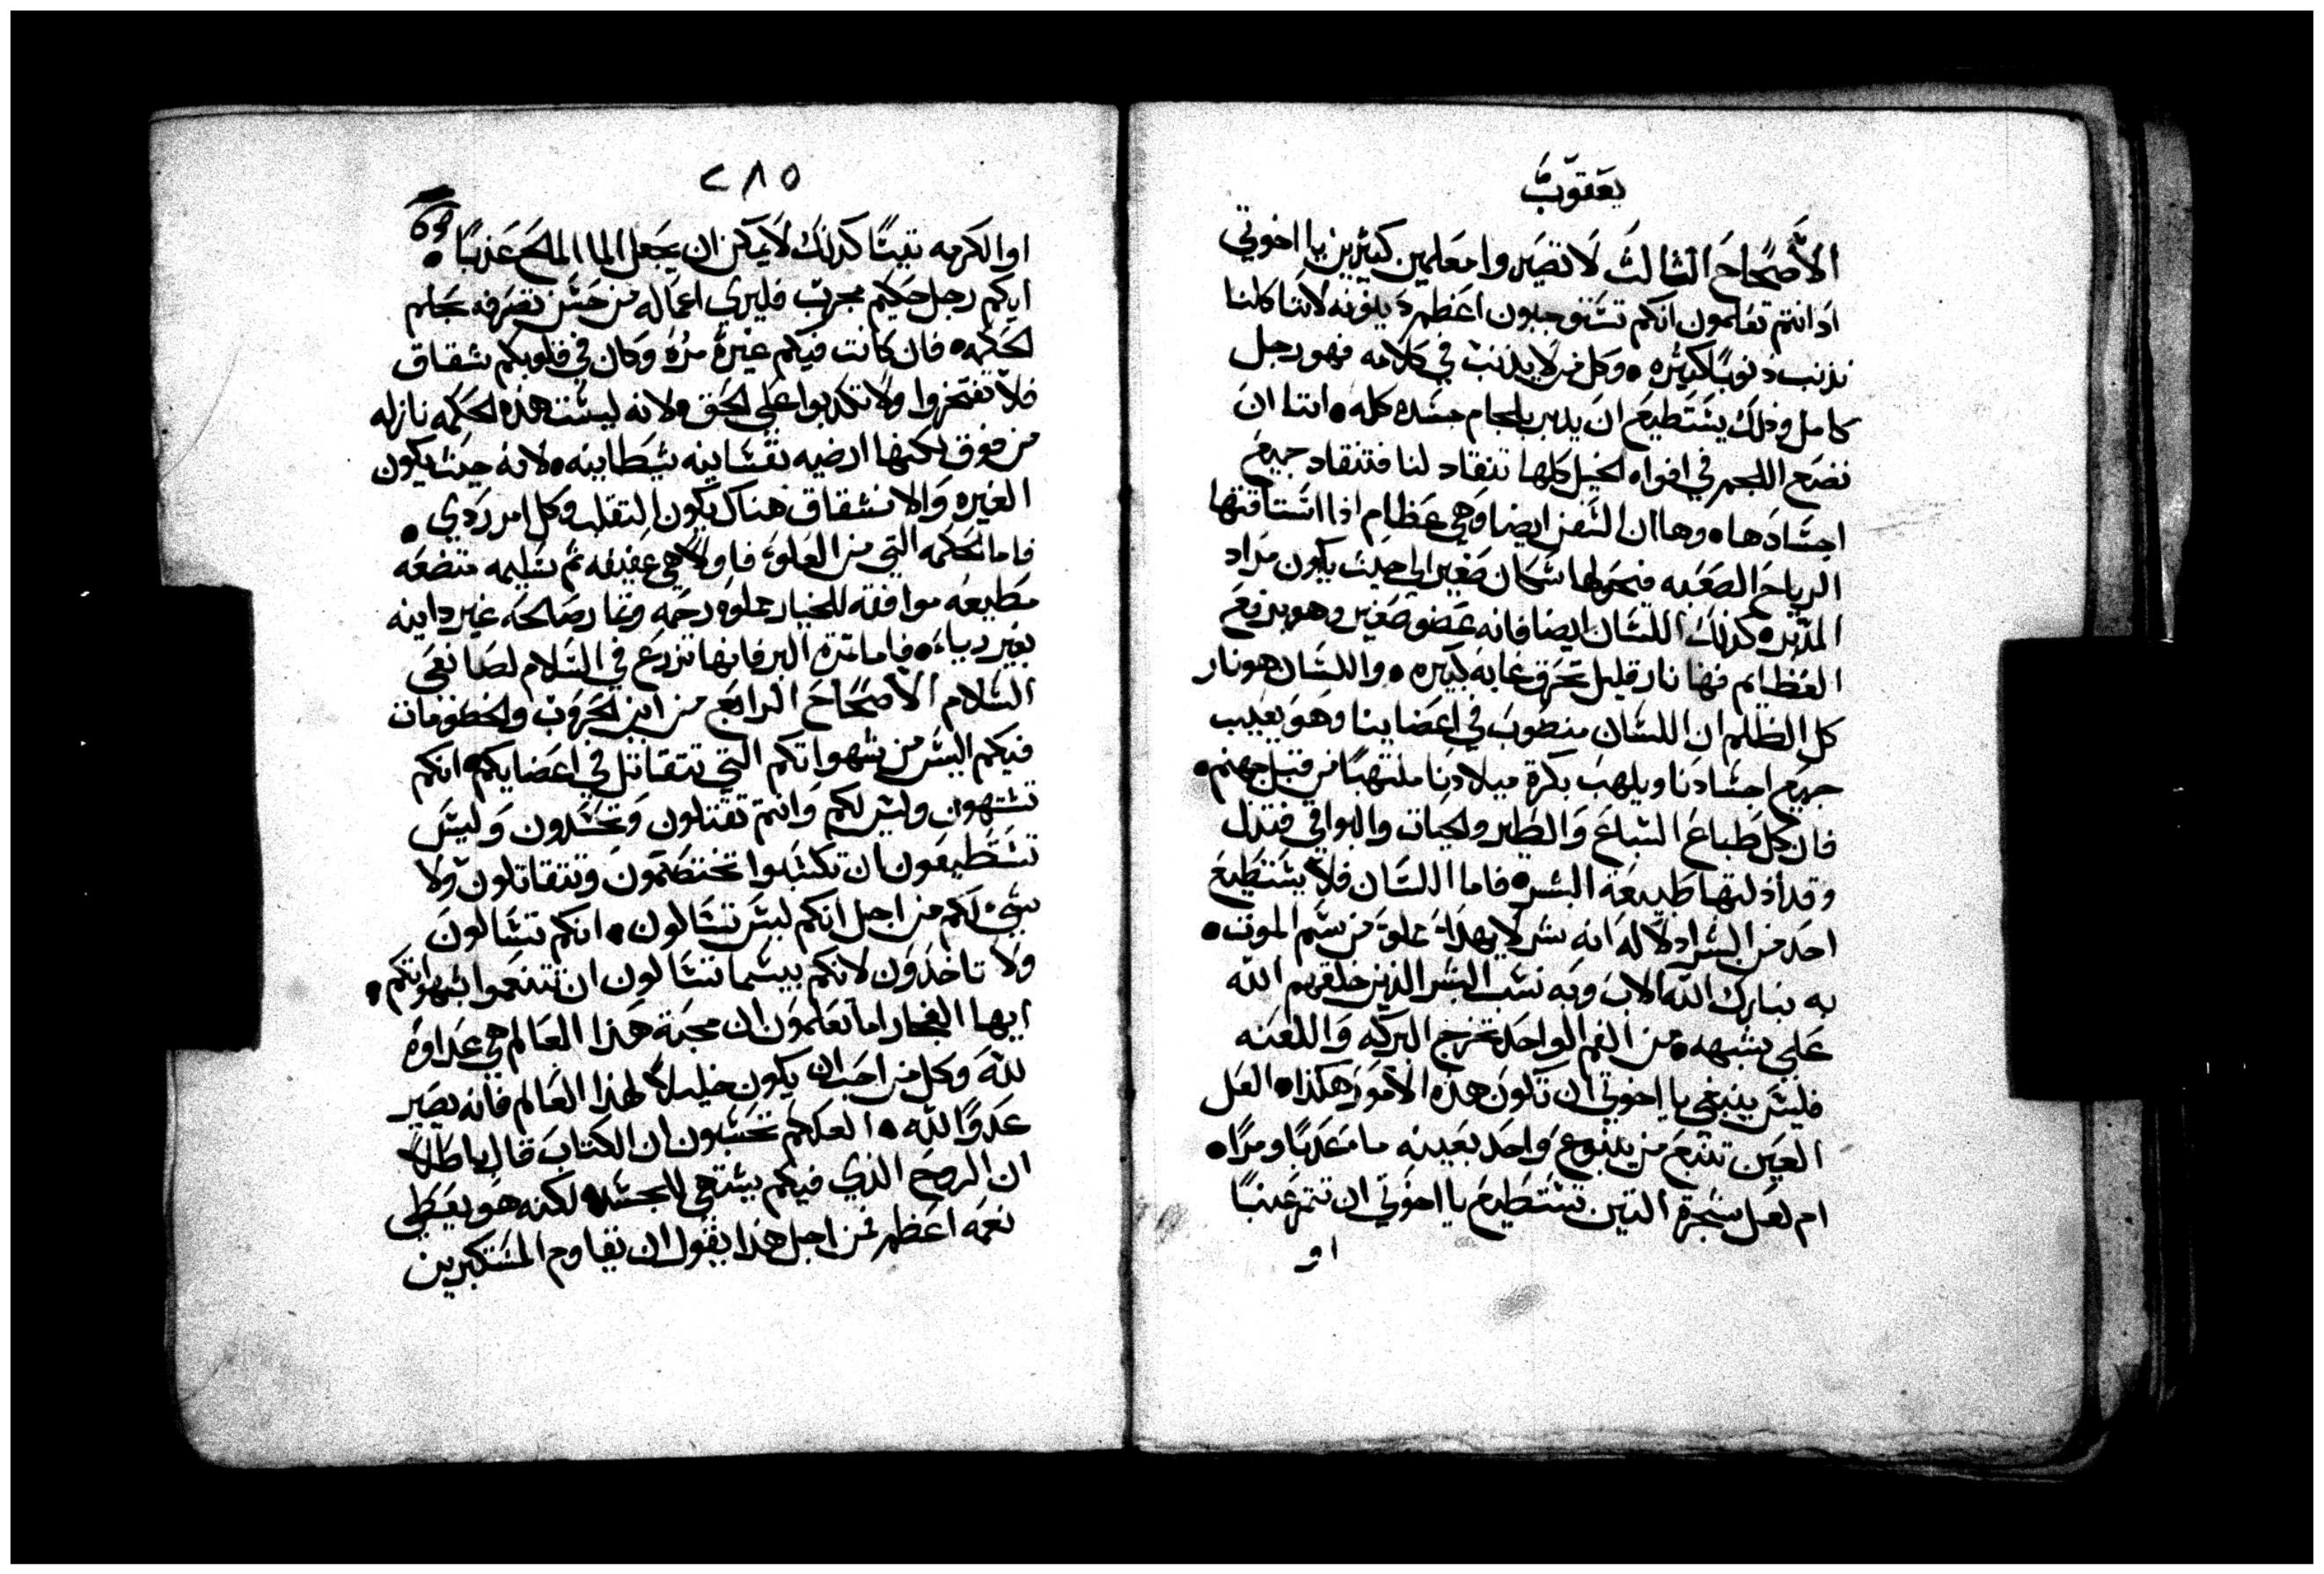 يعقوب
الاصحاح الثالث لا تصيروا معلمين كثيرين يا اخوتي
اد انتم تعلمون انكم تستوجبون اعظم دينونه لاننا كلنا
ندنب دنوبا كثيره وكل من لا يدنب في كلامه فهو رجل
كامل وذلك يستطيع ان يدبر بلجام جسده كله اننا ان
نضع اللجم في افواه الخيل كلها تنقاد لنا فتنقاد جميع
اجسادها وها ان السفن ايضا وهي عظام اذا استاقتها
الرياح الصعبه فيحولها سكان صغير الي حيث يكون مراد
المدبر كذلك اللسان ايضا فانه عضو صغير وهو يرفع
العظايم فها نار قليل تحرق غابه كبيره واللسان هو نار
كل الظلم ان اللسان منصوب في اعضاينا وهو يعيب
جميع اجسادنا ويلهب بكرة ميلادنا ملتهبا من قبل جهنم
فان كل طباع السباع والطير والحيات والبواقي فتذل
وقد اذلتها طبيعة البشر فاما اللسان فلا يستطيع
احد من البشر اذلاله انه شر لا يهدا مملو من سم الموت
به نبارك الله الاب وبه نسب البشر الذين خلقهم الله
علي شبهه من الفم الواحد تخرج البركه واللعنه
فليس ينبغي يا اخوتي ان تكون هذه الامور هكذا العل
العين تنبع من ينبوع واحد بعينه ما عدبا ومرا
ام لعل شجرة التين تستطيع يا اخوتي ان تثمر عنبا
او
٢٨٥
او الكرمه تينا كذلك لا يمكن ان يجعل الما المالح عذبا
ايكم رجل حكيم مجرب فليري اعماله من حسن تصرفه بحلم
الحكمه فان كانت فيكم غيرة مره وكان في قلوبكم شقاق
فلا تفتخروا ولا تكدبوا علي الحق ولانه ليست هذه الحكمه نازله
من فوق لكنها ارضيه نفسانيه شيطانيه لانه حيث يكون
الغيره والانشقاق هناك يكون التقلب وكل امر ردي
فاما الحكمه التي من العلو فاولا هي عفيفه ثم سليمه متضعه
مطيعه موافقه للخيار مملوه رحمه وثمار صالحه غير داينه
بغير رياء فاما ثمرة البر فانها تزرع في السلام لصانعي
السلام الاصحاح الرابع من اين الحروب والخصومات
فيكم اليس من شهواتكم التي تتقاتل في اعضايكم انكم
تشتهون وليس لكم وانتم تقتلون وتحسدون وليس
تستطيعون ان تكتسبوا تختصمون وتتقاتلون ولا
شيء لكم من اجل انكم ليس تسالون انكم تسالون
ولا تاخذون لانكم بيسما تسالون ان تتنعموا بشهواتكم
ايها الفجار اما تعلمون ان محبة هذا العالم هي عداوة
لله وكل من احب ان يكون خليلا لهذا العالم فانه يصير
عدوا لله العلكم تحسبون ان الكتاب قال باطلا
ان الروح الذي فيكم يشتهي للحسد لكنه هو يعطي
نعمه اعظم من اجل هذا يقول ان يقاوم المستكبرين